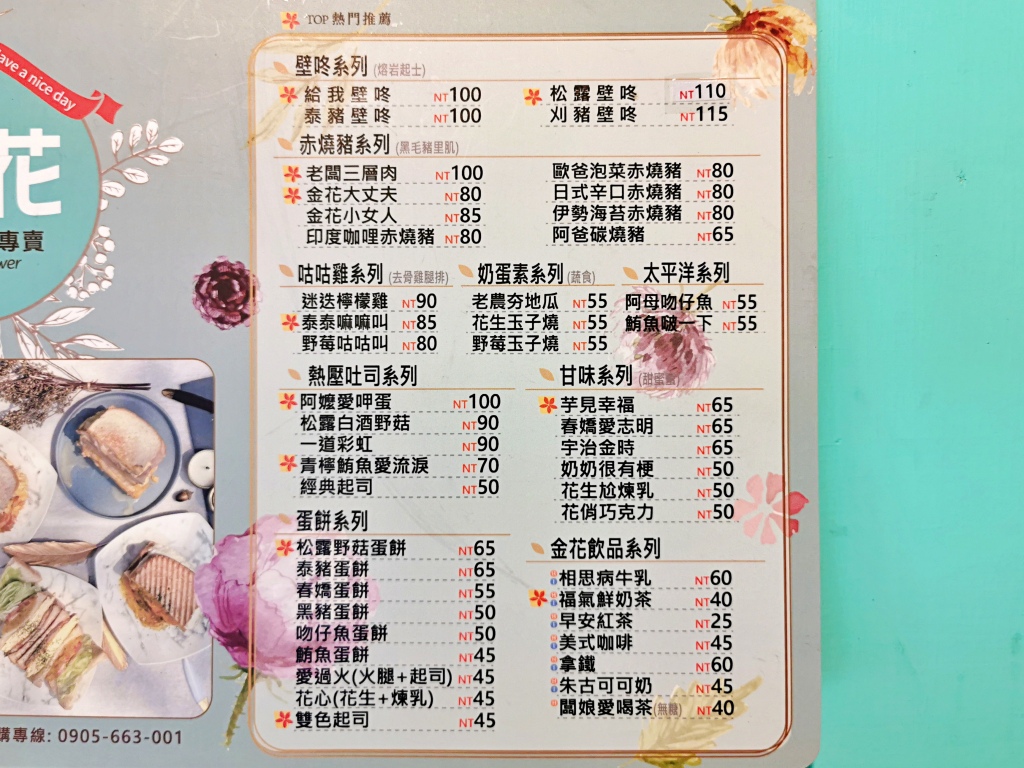 TOP 熱門推薦
Have a nice day
花
專賣
wer
購專線: 0905-663-001
壁咚系列 (熔岩起士)
給我壁咚 NT100
泰豬壁咚 NT100
松露壁咚 NT110
刈豬壁咚 NT115
赤燒豬系列 (黑毛豬里肌)
老闆三層肉 NT100
金花大丈夫 NT80
金花小女人 NT85
印度咖哩赤燒豬 NT80
歐爸泡菜赤燒豬 NT80
日式辛口赤燒豬 NT80
伊勢海苔赤燒豬 NT80
阿爸碳燒豬 NT65
咕咕雞系列 (去骨雞腿排)
迷迭檸檬雞 NT90
泰泰嘛嘛叫 NT85
野莓咕咕叫 NT80
奶蛋素系列 (蔬食)
老農夯地瓜 NT55
花生玉子燒 NT55
野莓玉子燒 NT55
太平洋系列
阿母吻仔魚 NT55
鮪魚啵一下 NT55
熱壓吐司系列
阿嬤愛呷蛋 NT100
松露白酒野菇 NT90
一道彩虹 NT90
青檸鮪魚愛流淚 NT70
經典起司 NT50
甘味系列 (甜蜜蜜)
芋見幸福 NT65
春嬌愛志明 NT65
宇治金時 NT65
奶奶很有梗 NT50
花生尬煉乳 NT50
花俏巧克力 NT50
蛋餅系列
松露野菇蛋餅 NT65
泰豬蛋餅 NT65
春嬌蛋餅 NT55
黑豬蛋餅 NT50
吻仔魚蛋餅 NT50
鮪魚蛋餅 NT45
愛過火(火腿+起司) NT45
花心(花生+煉乳) NT45
雙色起司 NT45
金花飲品系列
相思病牛乳 NT60
福氣鮮奶茶 NT40
早安紅茶 NT25
美式咖啡 NT45
拿鐵 NT60
朱古可可奶 NT45
闆娘愛喝茶(無糖) NT40